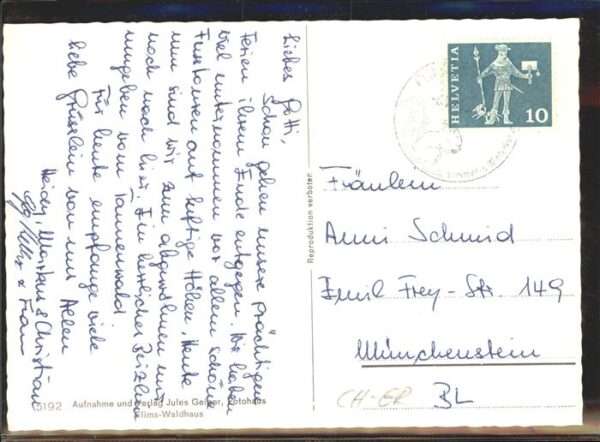 Liebes Gotti,
Schon gehen unsere prächtigen
Ferien ihrem Ende entgegen. Wir haben
viel unternommen vor allem schöne
Turstouren auf luftige Höhen. Heute
nun sind wir zum abgewöhnen nur
noch hier. Ein herrliches Beizlein
umgeben vom Tannenwald
Für heute empfange viele
liebe Grüsslein von uns Allen
Heidy, Markus & Christian
& Frau
HELVETIA
10
Fräulein
Anni Schmid
Emil Frey-Str. 149
Münchenstein
BL
CH-GR
Reproduktion verboten
5192 Aufnahme und Verlag Jules Geiger, Fotohaus
Flims-Waldhaus